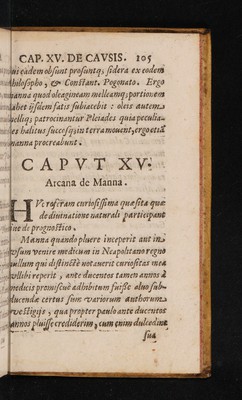 CAP. XV. DE CAVSIS. 105
us eadem obsunt prosuntq; sidera ex eodem
philosopho, & Constant. Pogonato. Ergo
manna quod oleagineam melleamq; portionem
habet ijsdem fatis subiacebit: oleo autem
mellíq; patrocinantur Pleiades quia peculia-
es halitus succosq; in terra mouent, ergo etiã
manna procreabunt.
CAPVT XV.
Arcana de Manna.
HVc rostram curiosissima quæsita quæ
de diuinatione naturali participant
ine de prognostico.
Manna quando pluere inceperit aut in
vsum venire medicum in Neapolitano regno
nullum qui distinctè notauerit curiositas mea
vllibi reperit, ante ducentos tamen annos à
medicis promiscuè adhibitum fuisse oliuo sub-
ducendæ certus sum variorum authorum
vestigijs, qua propter paulo ante ducentos
annos pluisse crediderim, cum enim dulcedine
sua